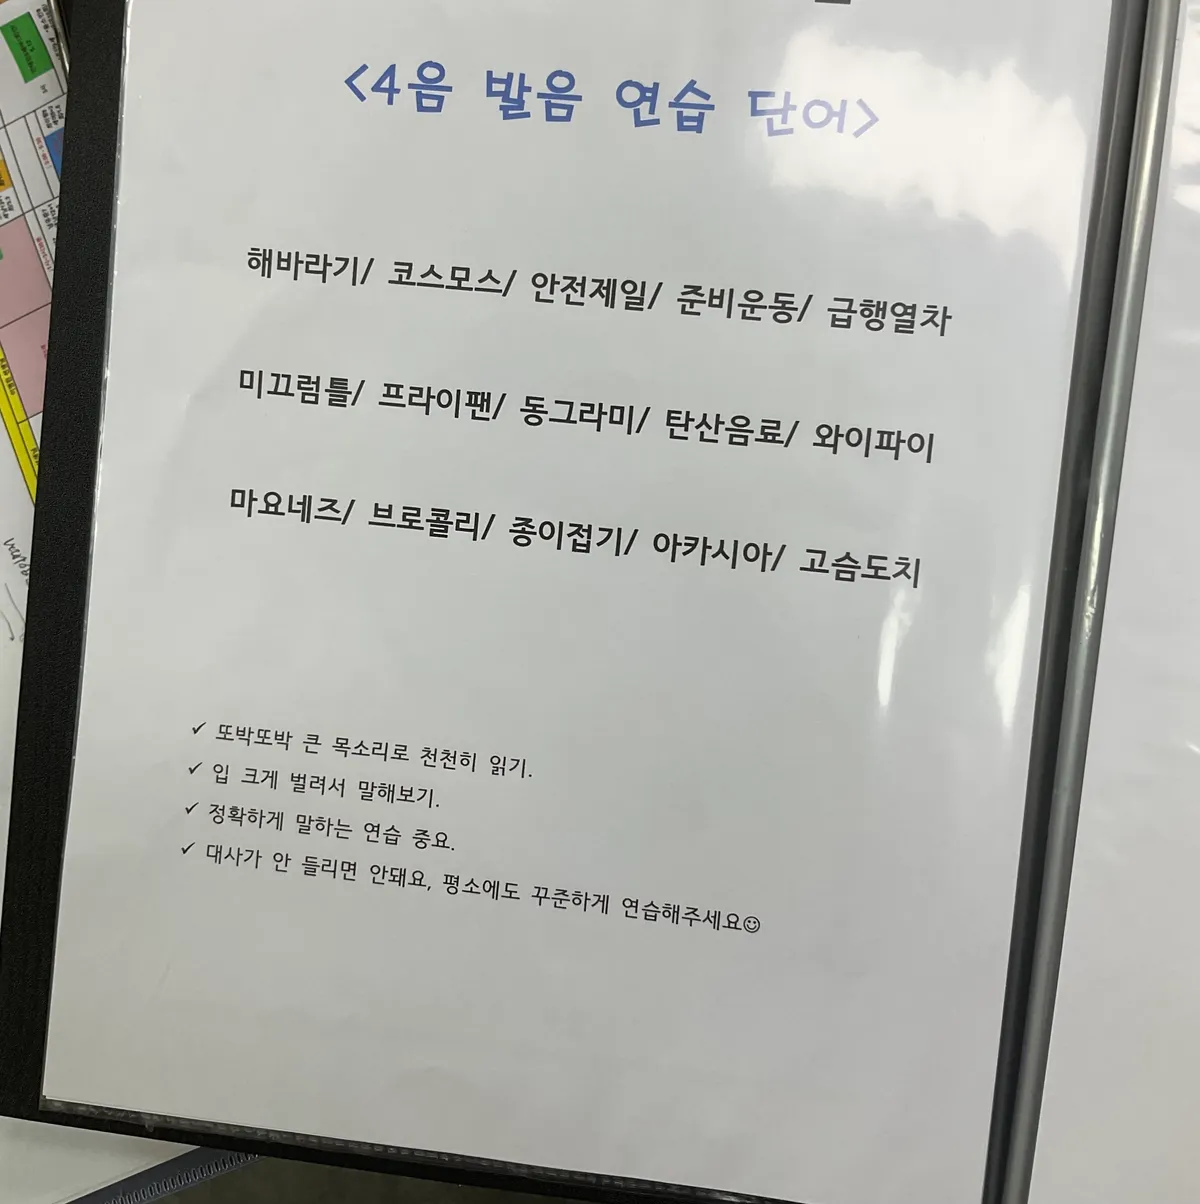 <4음 발음 연습 단어>
해바라기/ 코스모스/ 안전제일/ 준비운동/ 급행열차
미끄럼틀/ 프라이팬/ 동그라미/ 탄산음료/ 와이파이
마요네즈/ 브로콜리/ 종이접기/ 아카시아/ 고슴도치
✓ 또박또박 큰 목소리로 천천히 읽기.
✓ 입 크게 벌려서 말해보기.
✓ 정확하게 말하는 연습 중요.
✓ 대사가 안 들리면 안돼요, 평소에도 꾸준하게 연습해주세요☺